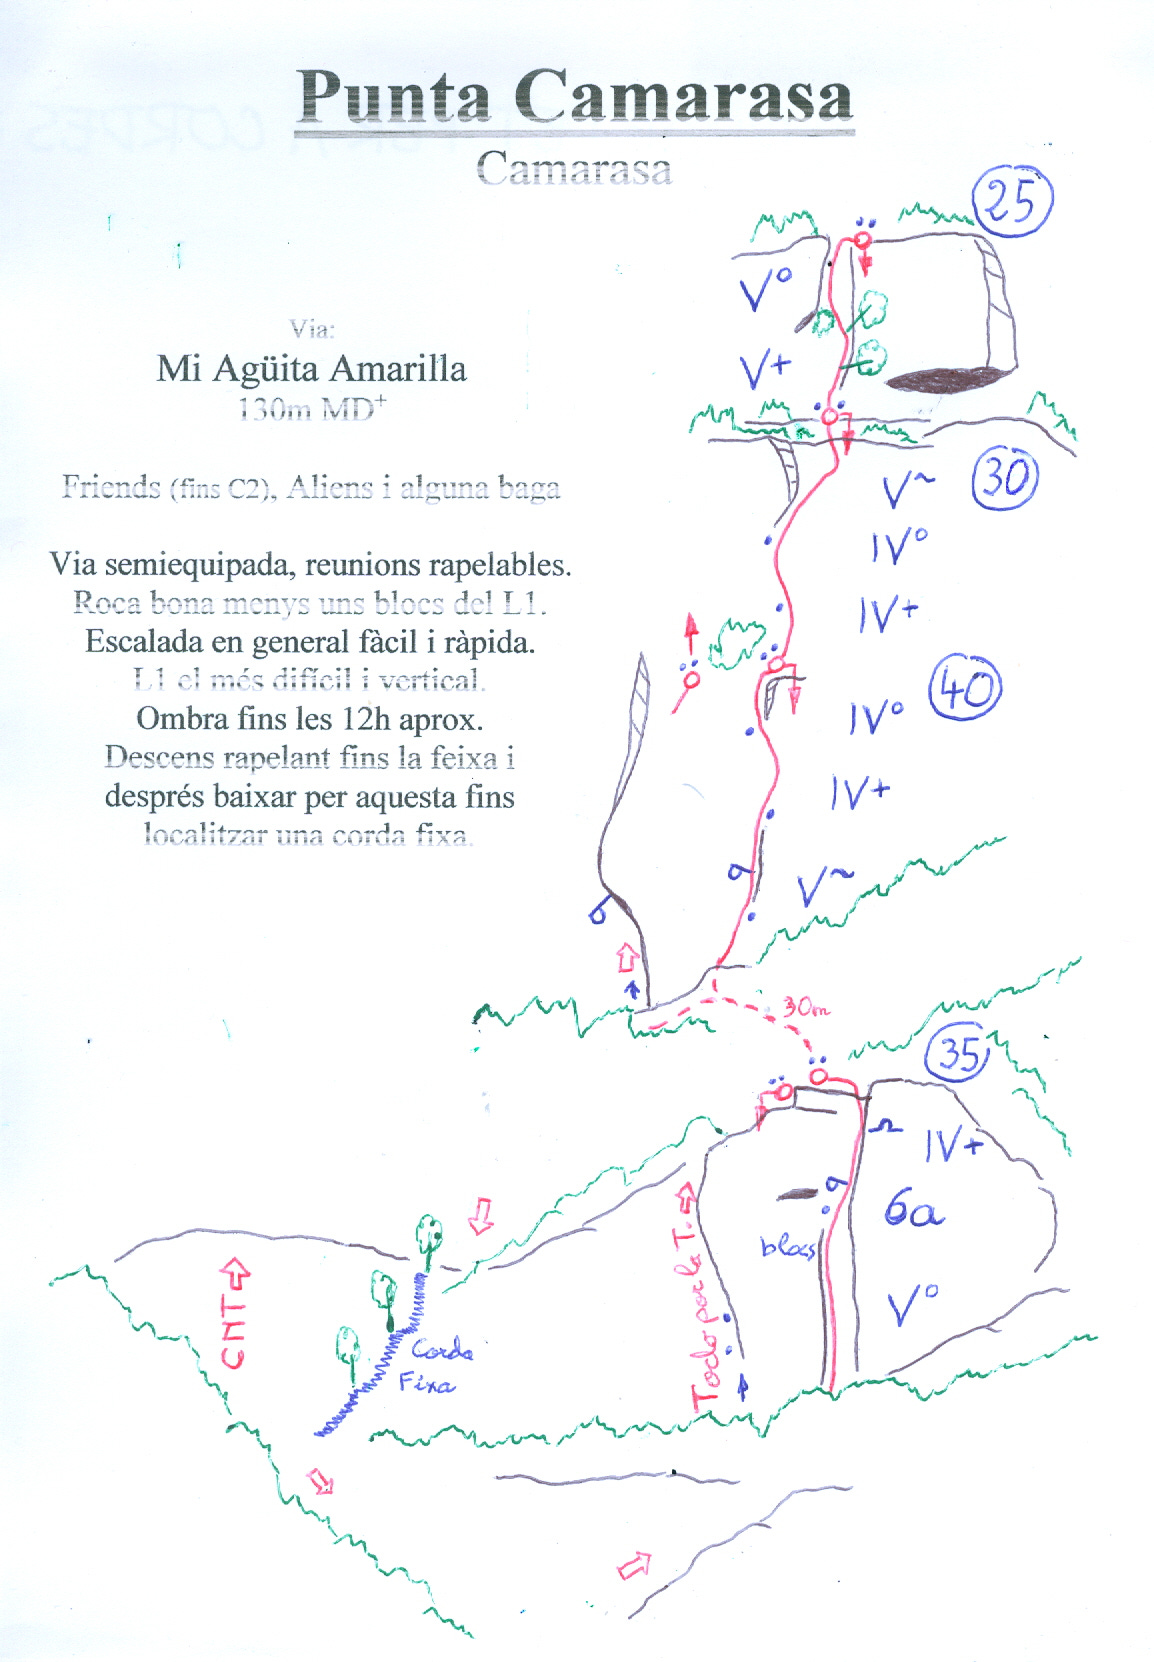 Punta Camarasa
Camarasa
Via:
Mi Agüita Amarilla
130m MD+
Friends (fins C2), Aliens i alguna baga
Via semiequipada, reunions rapelables.
Roca bona menys uns blocs del L1.
Escalada en general fàcil i ràpida.
L1 el més difícil i vertical.
Ombra fins les 12h aprox.
Descens rapelant fins la feixa i
després baixar per aquesta fins
localitzar una corda fixa.
25
V°
V+
30
V~
IV°
IV+
40
IV°
IV+
V~
30m
35
IV+
6a
blocs
V°
Todo por la T.
GMT
Corda
Fixa